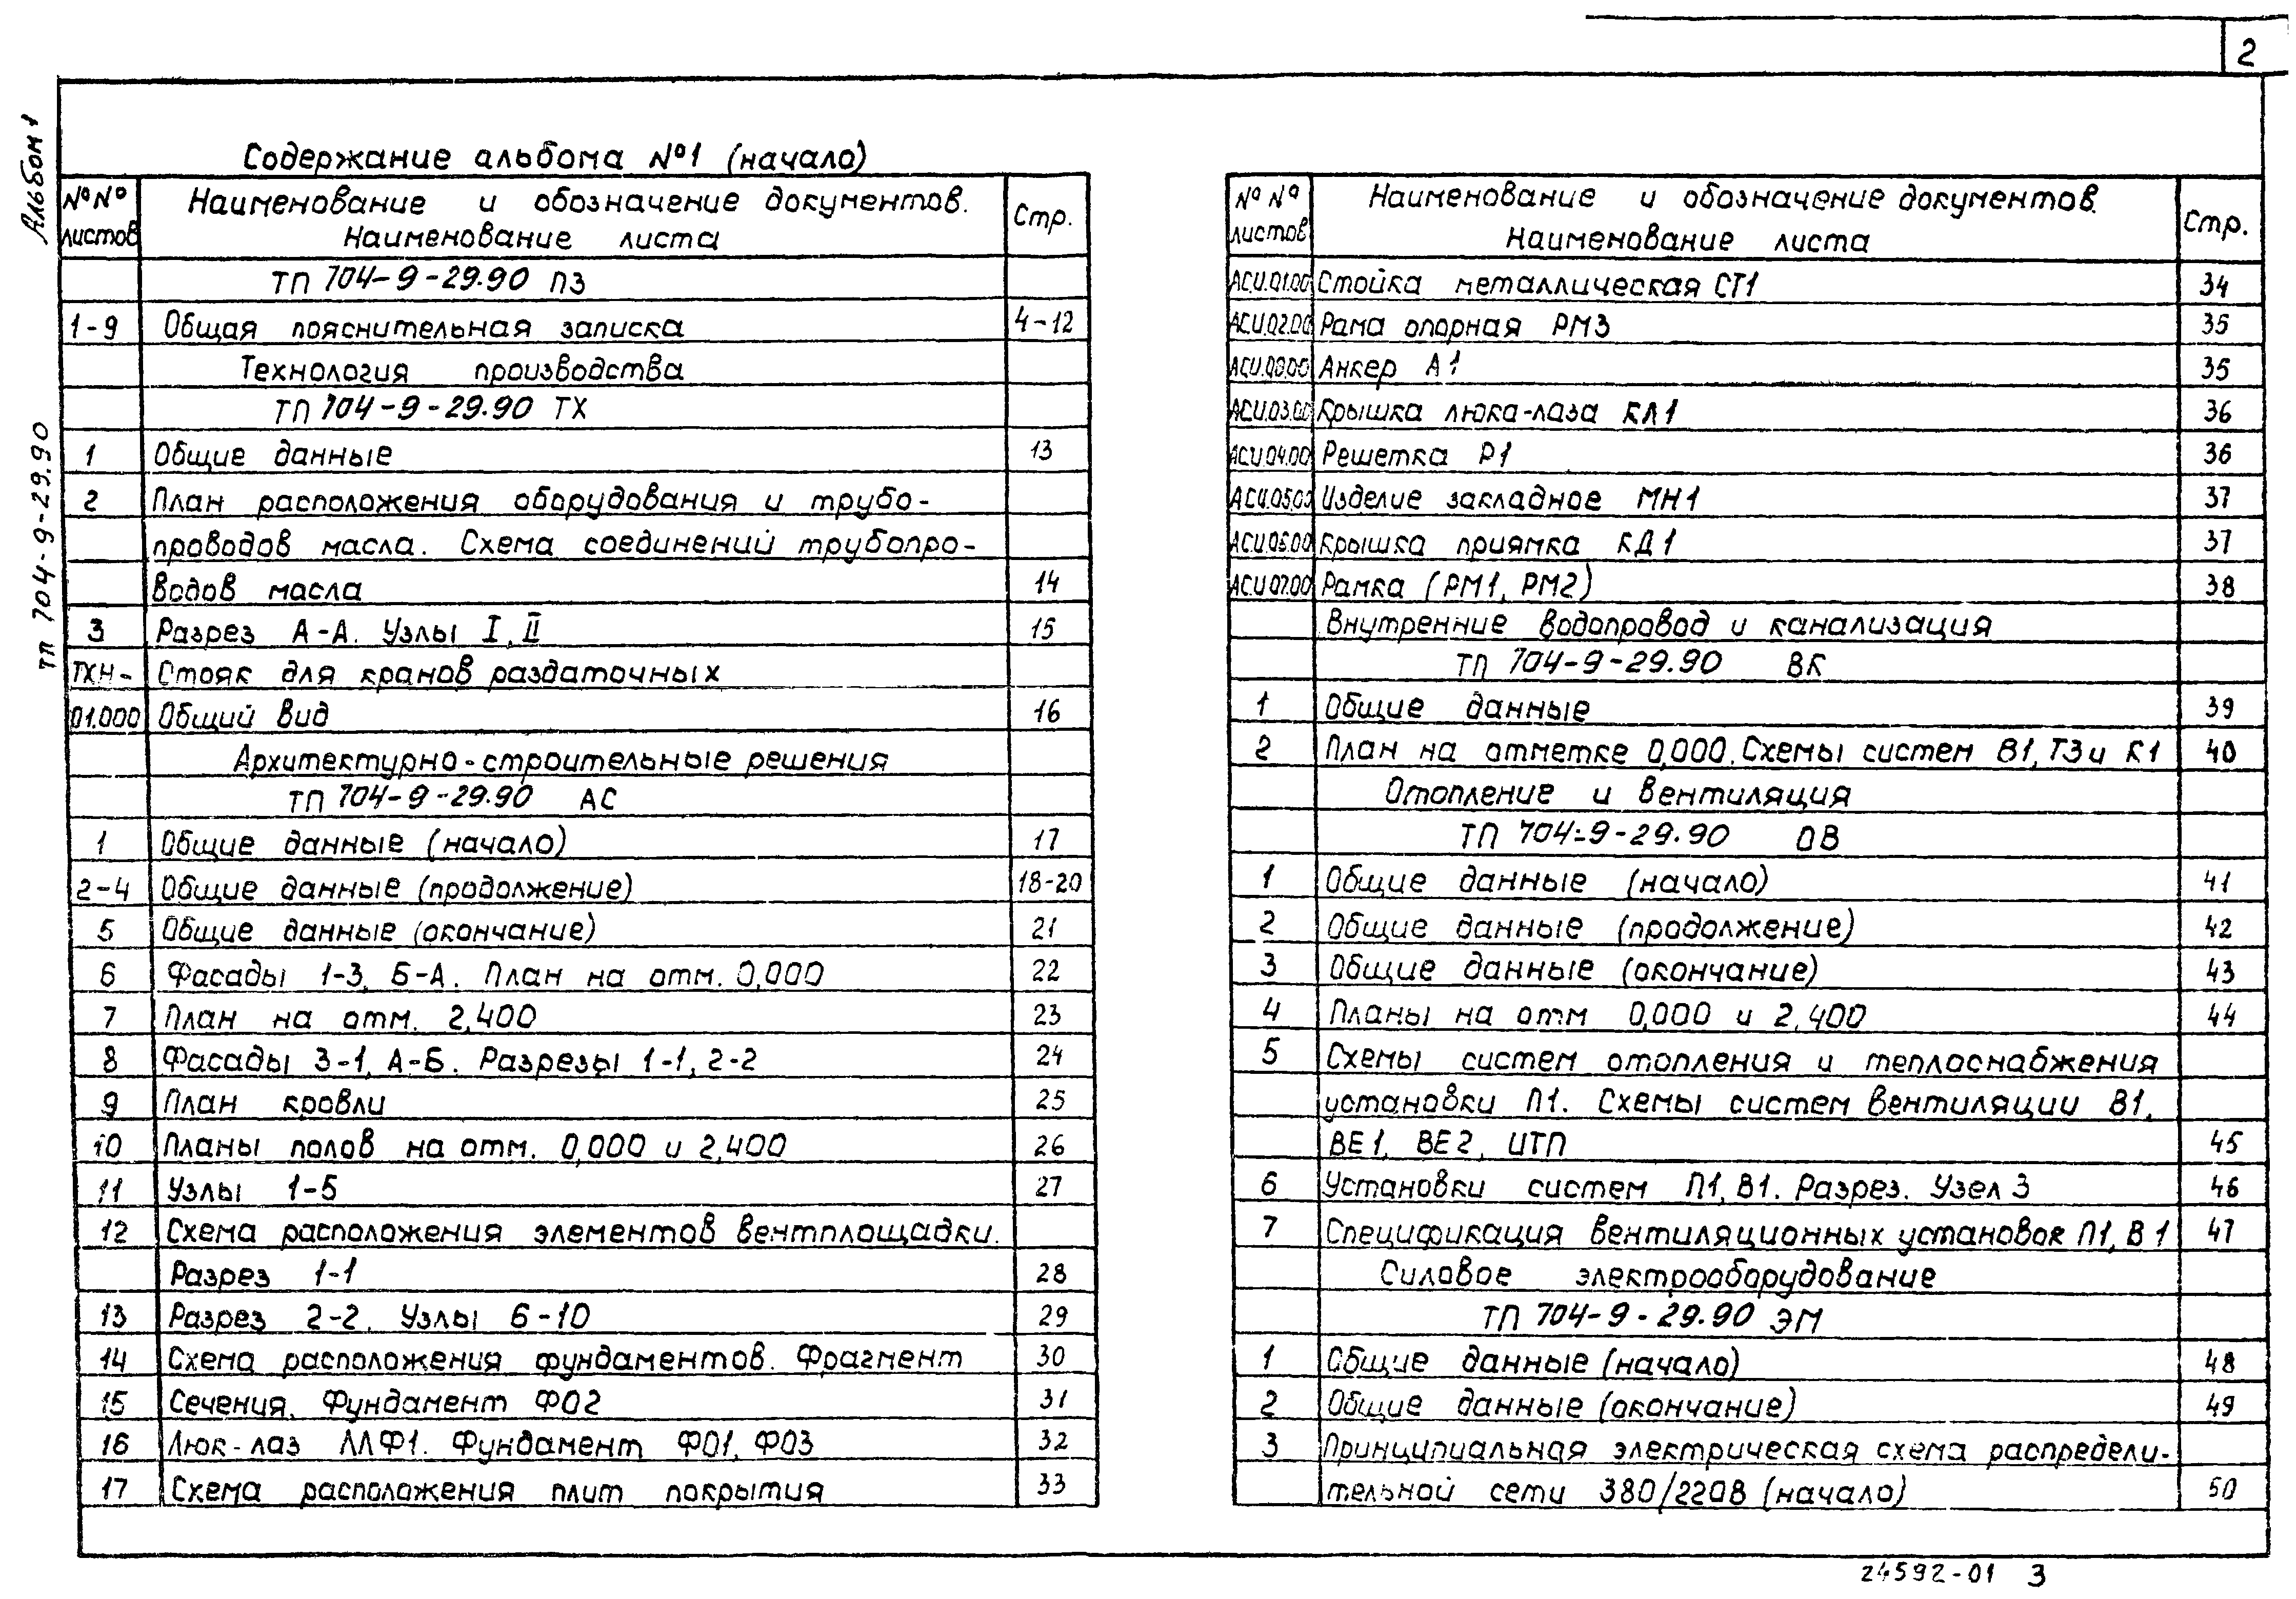 2
Альбом 1
ТП 704-9-29.90
Содержание альбома №1 (начало)
№№ листов | Наименование и обозначение документов. Наименование листа | Стр.
ТП 704-9-29.90 ПЗ
1-9 Общая пояснительная записка 4-12
Технология производства
ТП 704-9-29.90 ТХ
1 Общие данные 13
2 План расположения оборудования и трубо-
проводов масла. Схема соединений трубопро-
водов масла 14
3 Разрез А-А. Узлы I, II 15
ТХН- Стояк для кранов раздаточных
01.000 Общий вид 16
Архитектурно-строительные решения
ТП 704-9-29.90 АС
1 Общие данные (начало) 17
2-4 Общие данные (продолжение) 18-20
5 Общие данные (окончание) 21
6 Фасады 1-3, Б-А. План на отм. 0,000 22
7 План на отм. 2,400 23
8 Фасады 3-1, А-Б. Разрезы 1-1, 2-2 24
9 План кровли 25
10 Планы полов на отм. 0,000 и 2,400 26
11 Узлы 1-5 27
12 Схема расположения элементов вентплощадки.
Разрез 1-1 28
13 Разрез 2-2. Узлы 6-10 29
14 Схема расположения фундаментов. Фрагмент 30
15 Сечения. Фундамент ФО2 31
16 Люк-лаз ЛЛФ1. Фундамент ФО1, ФО3 32
17 Схема расположения плит покрытия 33
№№ листов | Наименование и обозначение документов. Наименование листа | Стр.
АС.И.01.00 Стойка металлическая СТ1 34
АС.И.02.00 Рама опорная РМ3 35
Анкер А1 35
АС.И.03.00 Крышка люка-лаза КЛ1 36
АС.И.04.00 Решетка Р1 36
АС.И.05.00 Изделие закладное МН1 37
АС.И.06.00 Крышка приямка КД1 37
АС.И.07.00 Рамка (РМ1, РМ2) 38
Внутренние водопровод и канализация
ТП 704-9-29.90 ВК
1 Общие данные 39
2 План на отметке 0,000. Схемы систем В1, Т3 и К1 40
Отопление и вентиляция
ТП 704-9-29.90 ОВ
1 Общие данные (начало) 41
2 Общие данные (продолжение) 42
3 Общие данные (окончание) 43
4 Планы на отм 0,000 и 2,400 44
5 Схемы систем отопления и теплоснабжения
установки П1. Схемы систем вентиляции В1,
ВЕ1, ВЕ2, ИТП 45
6 Установки систем П1, В1. Разрез. Узел 3 46
7 Спецификация вентиляционных установок П1, В1 47
Силовое электрооборудование
ТП 704-9-29.90 ЭМ
1 Общие данные (начало) 48
2 Общие данные (окончание) 49
3 Принципиальная электрическая схема распредели-
тельной сети 380/220В (начало) 50
24592-01 3